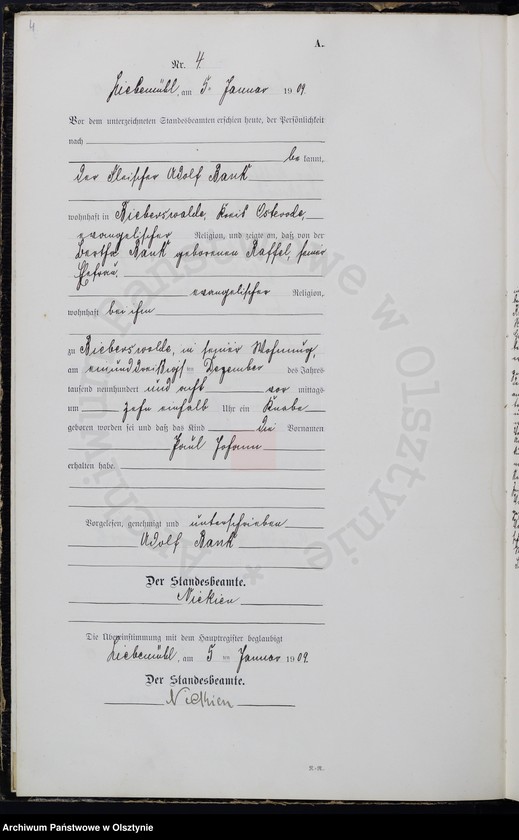 4
A.
Nr. 4
Liebemühl, am 5ten Januar 1909
Vor dem unterzeichneten Standesbeamten erschien heute, der Persönlichkeit
nach
be kannt,
der Fleischer Adolf Bank
wohnhaft in Bieberswalde, Kreis Osterode,
evangelischer Religion, und zeigte an, daß von der
Bertha Bank geborenen Raffel, seiner
Ehefrau,
evangelischer Religion,
wohnhaft bei ihm
zu Bieberswalde, in seiner Wohnung,
am einunddreißigsten Dezember des Jahres
tausend neunhundert und acht vor mittags
um zehn einhalb Uhr ein Knabe
geboren worden sei und daß das Kind die Vornamen
Paul Johann
erhalten habe.
Vorgelesen, genehmigt und unterschrieben
Adolf Bank
Der Standesbeamte.
Nickien
Die Übereinstimmung mit dem Hauptregister beglaubigt
Liebemühl, am 5ten Januar 1909
Der Standesbeamte.
Nickien
R.-R.
Archiwum Państwowe w Olsztynie
Archiwum Państwowe w Olsztynie